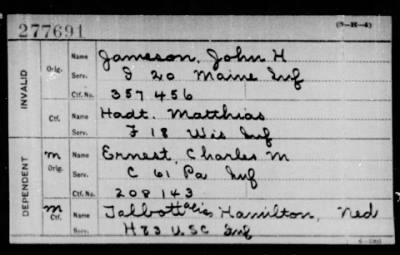 277691
(3-H-4)
INVALID
Orig. Name Jameson, John H
Serv. I 20 Maine Inf
Ctf. No. 357456
Ctf. Name Hadt. Matthias
Serv. F 18 Wis Inf
DEPENDENT
M Orig. Name Ernest, Charles M
Serv. C 61 Pa Inf
Ctf. No. 208143
M Ctf. Name Talbott alias Hamilton, Ned
Serv. H 83 USC Inf